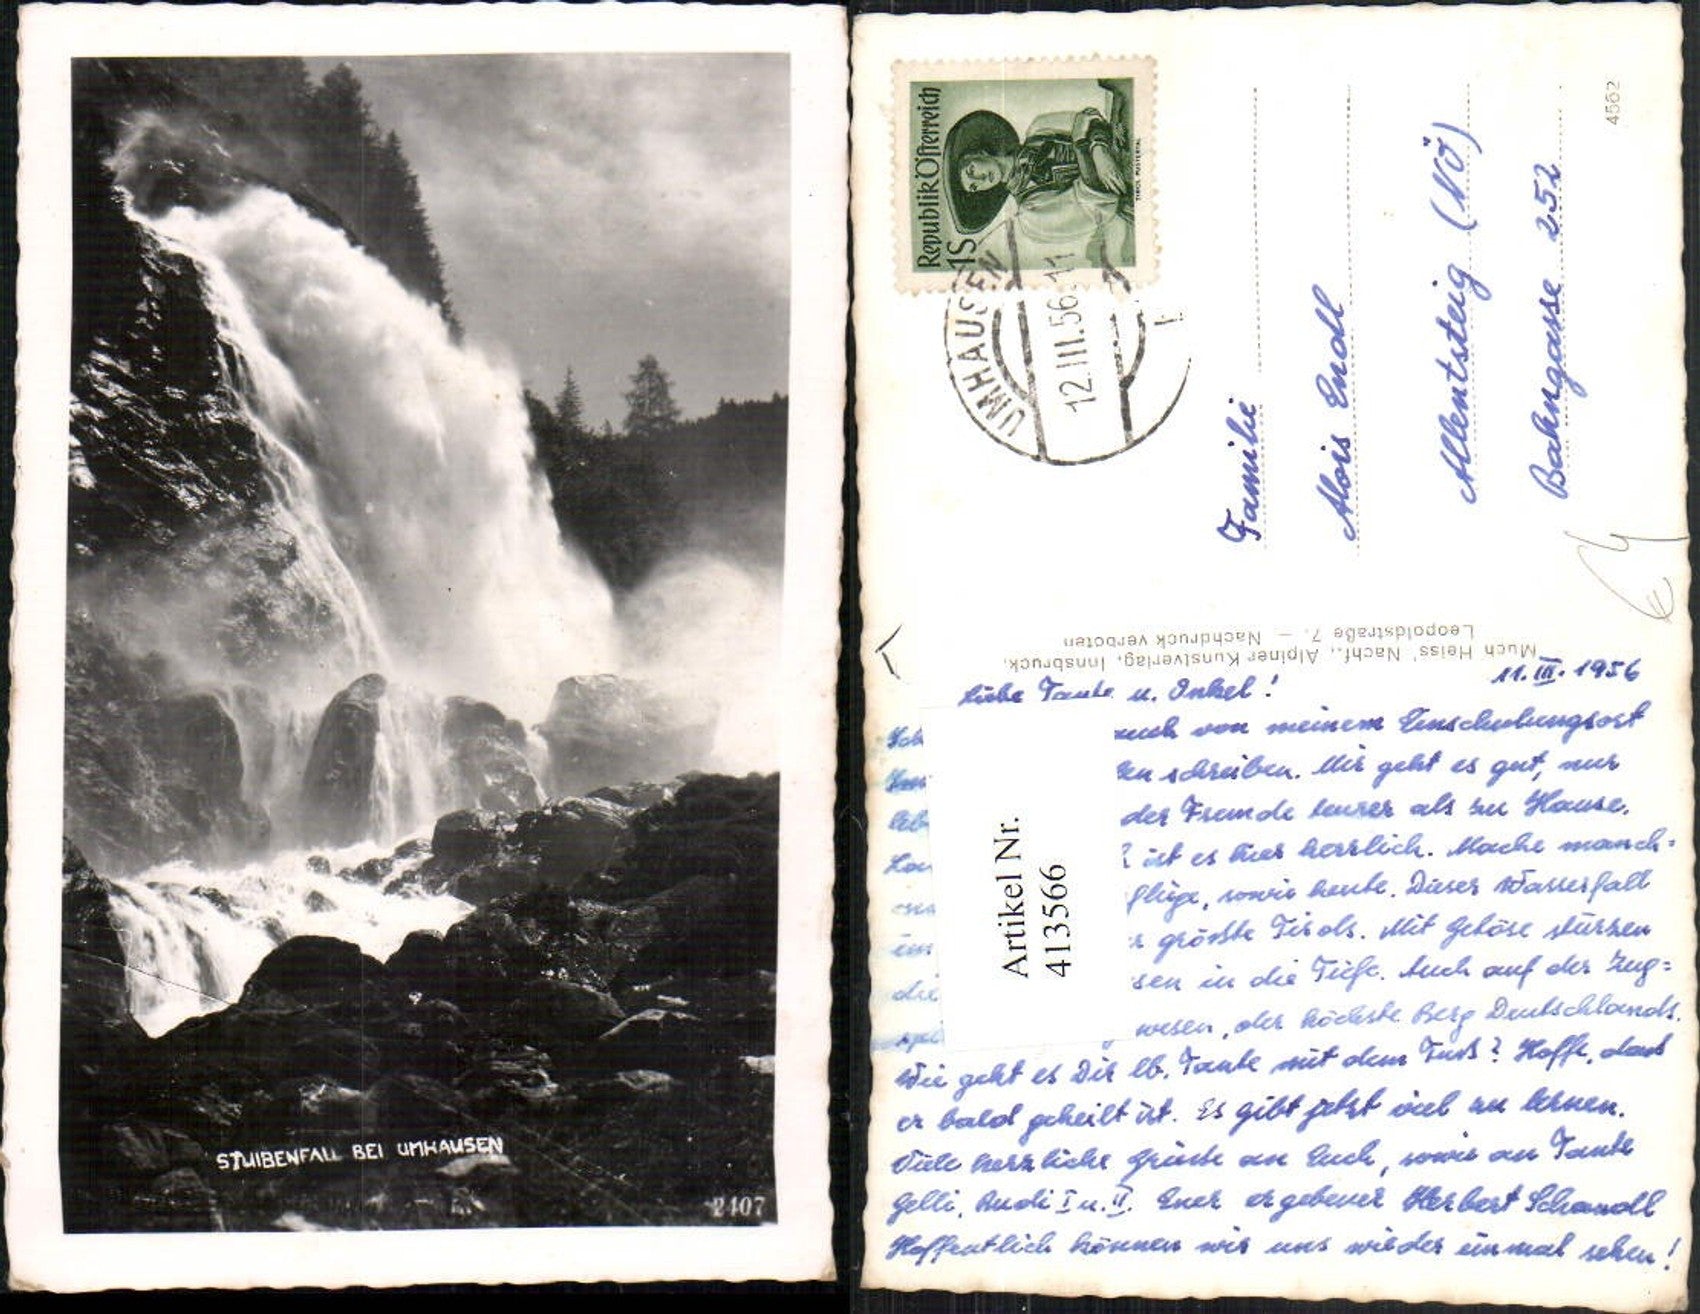 STUIBENFALL BEI UMHAUSEN
2407
Republik Österreich
1S
TIROL, PUSTERTAL
UMHAUSEN
12.III.56.11
Familie
Alois Endl
Allentsteig (NÖ)
Bahngasse 252
4562
Much Heiss' Nachf., Alpiner Kunstverlag, Innsbruck,
Leopoldstraße 7. – Nachdruck verboten
11.III.1956
Liebe Tante u. Onkel!
Ich auch von meinem Einschulungsort
schreiben. Mir geht es gut, nur
leb der Fremde teurer als zu Hause.
ist es hier herrlich. Mache manch=
flüge, sowie heute. Dieser Wasserfall
im größte Tirols. Mit Getöse stürzen
die sen in die Tiefe. Auch auf der Zug=
wesen, der höchste Berg Deutschlands.
Wie geht es Dir lb. Tante mit dem Fuß? Hoffe, daß
er bald geheilt ist. Es gibt jetzt viel zu lernen.
Viele herzliche Grüße an Euch, sowie an Tante
Gelli, Rudi I u. II. Euer ergebener Herbert Schandl
Hoffentlich können wir uns wieder einmal sehen!
Artikel Nr.
413566